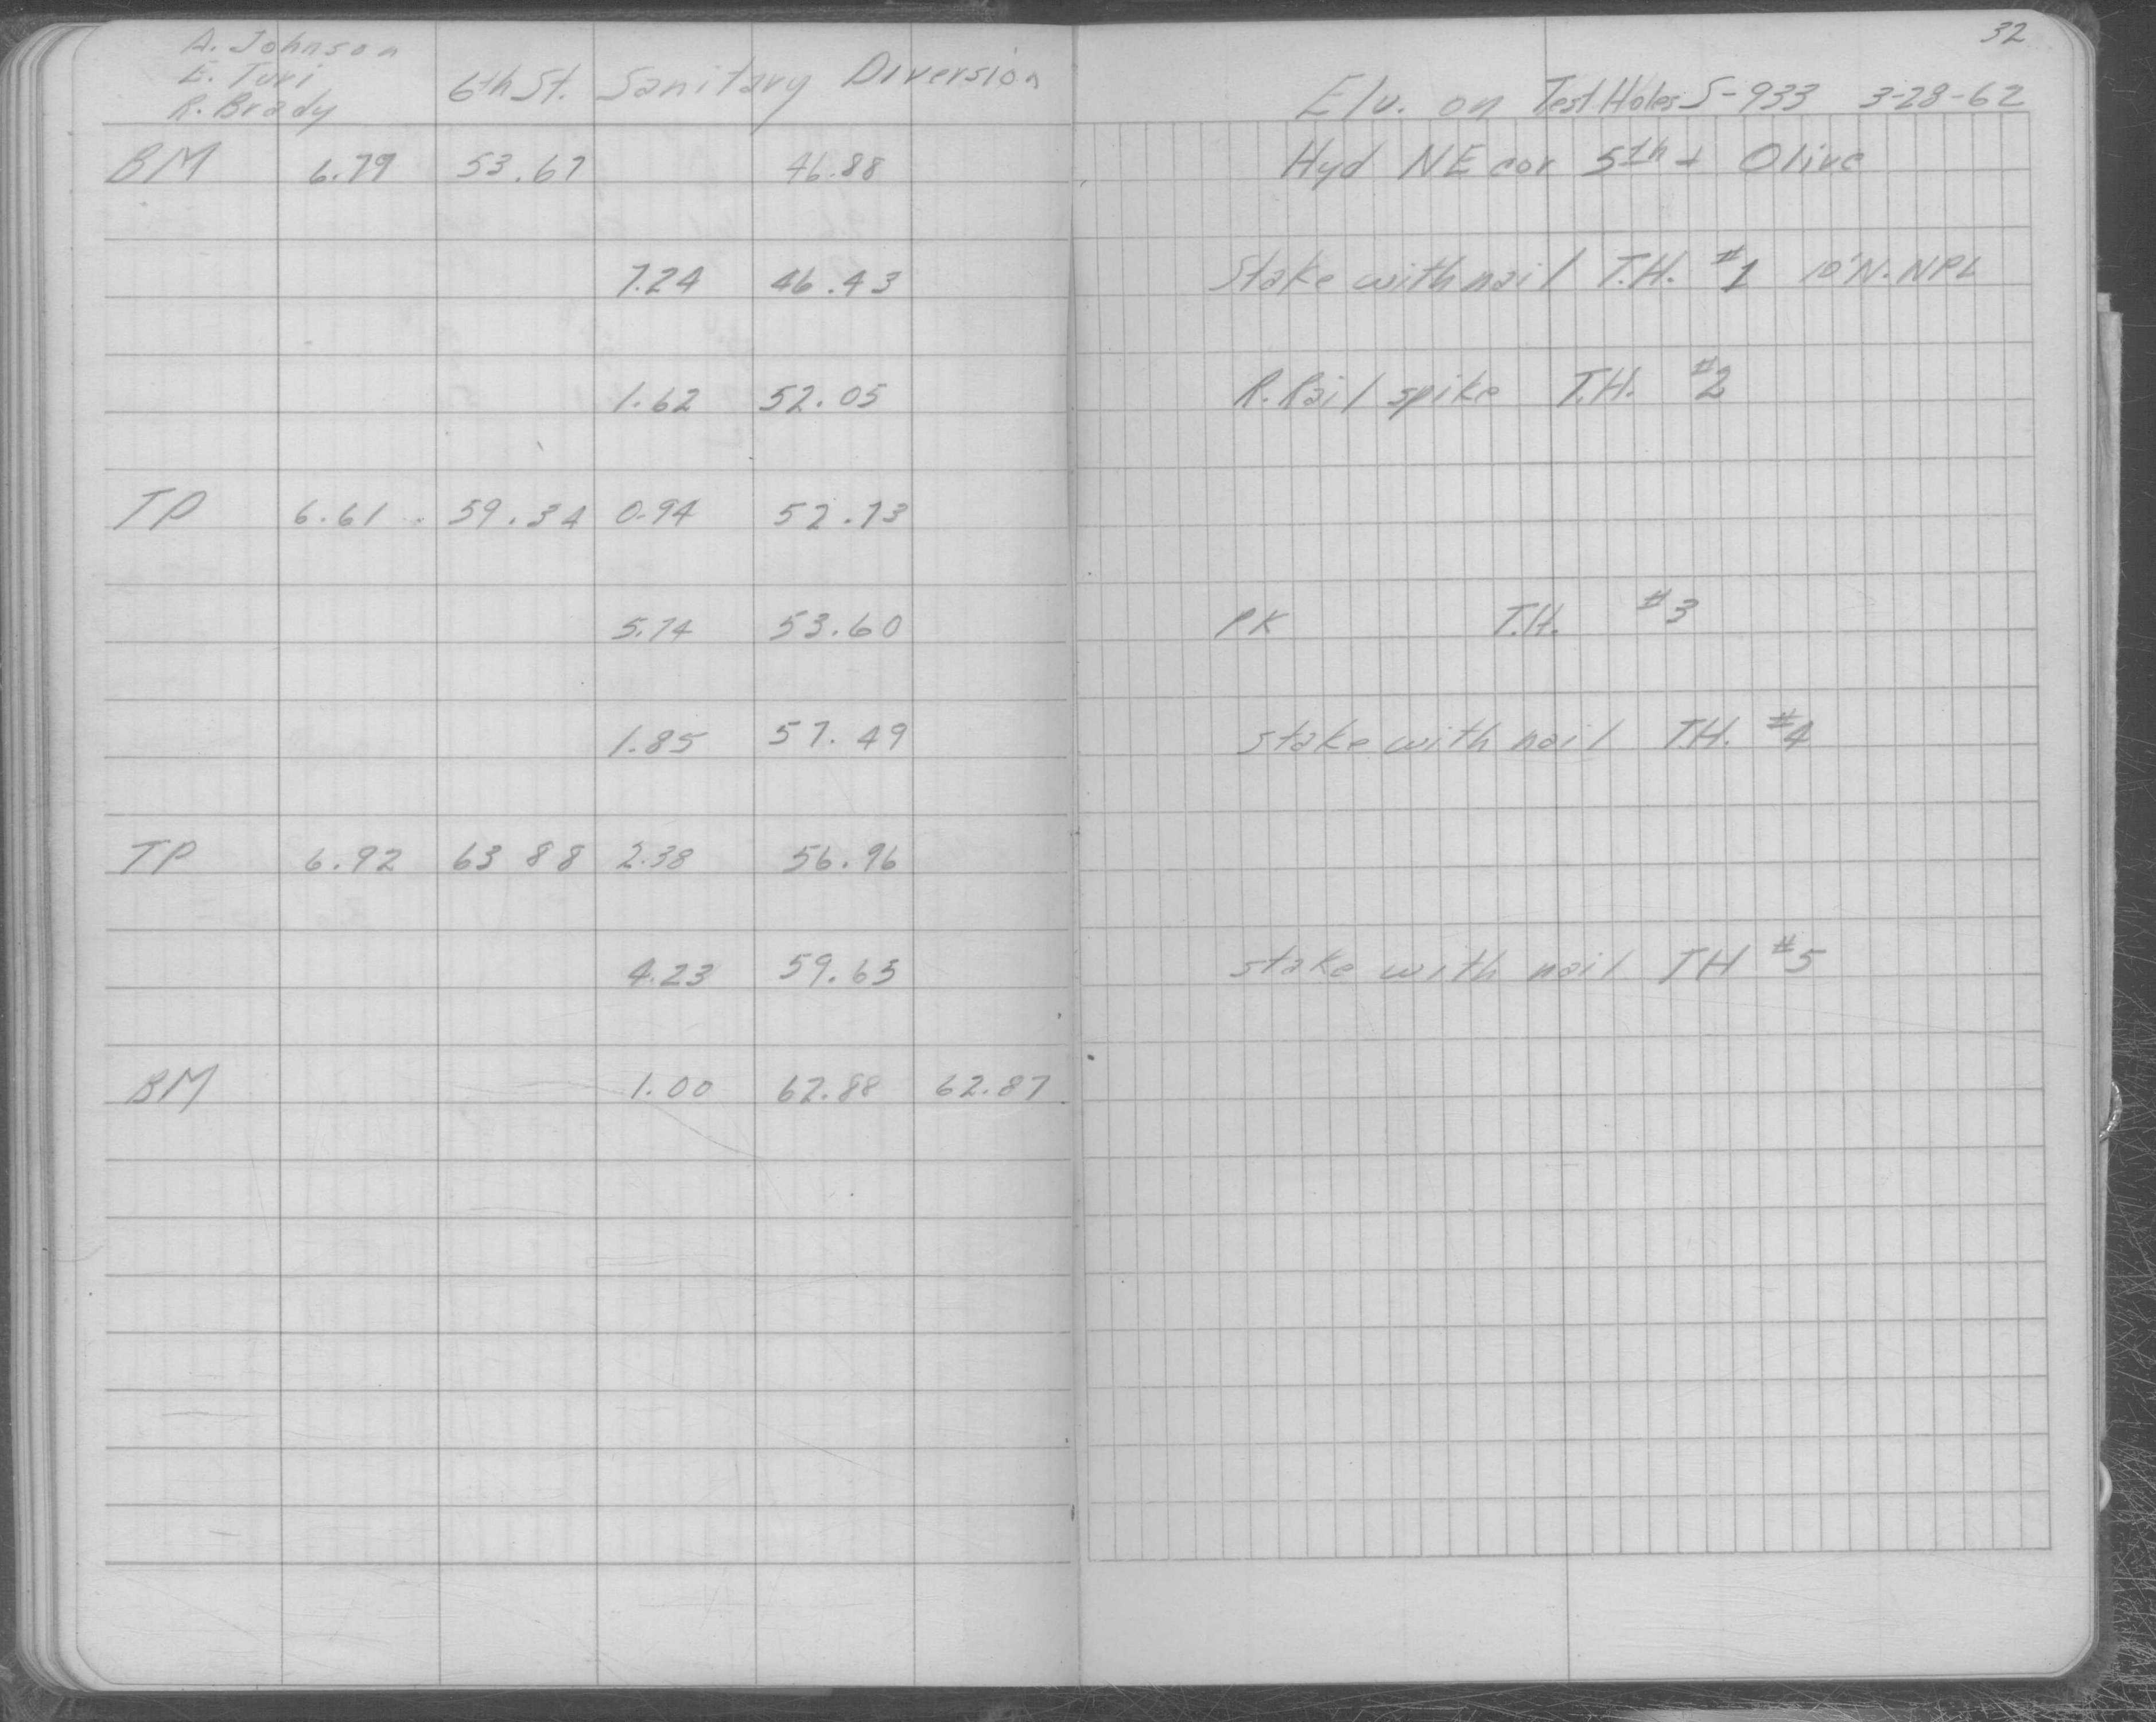 32
A. Johnson
E. Turi
R. Brady
6th St. Sanitary Diversion
Elv. on Test Holes S-933 3-28-62
BM 6.79 53.67 46.88 Hyd NE cor 5th + Olive
7.24 46.43 Stake with nail T.H. #1 10'N. NPL
1.62 52.05 R. Rail spike T.H. #2
TP 6.61 59.34 0.94 52.73
5.74 53.60 PK T.H. #3
1.85 57.49 stake with nail T.H. #4
TP 6.92 63 88 2.38 56.96
4.23 59.65 stake with nail TH #5
BM 1.00 62.88 62.87